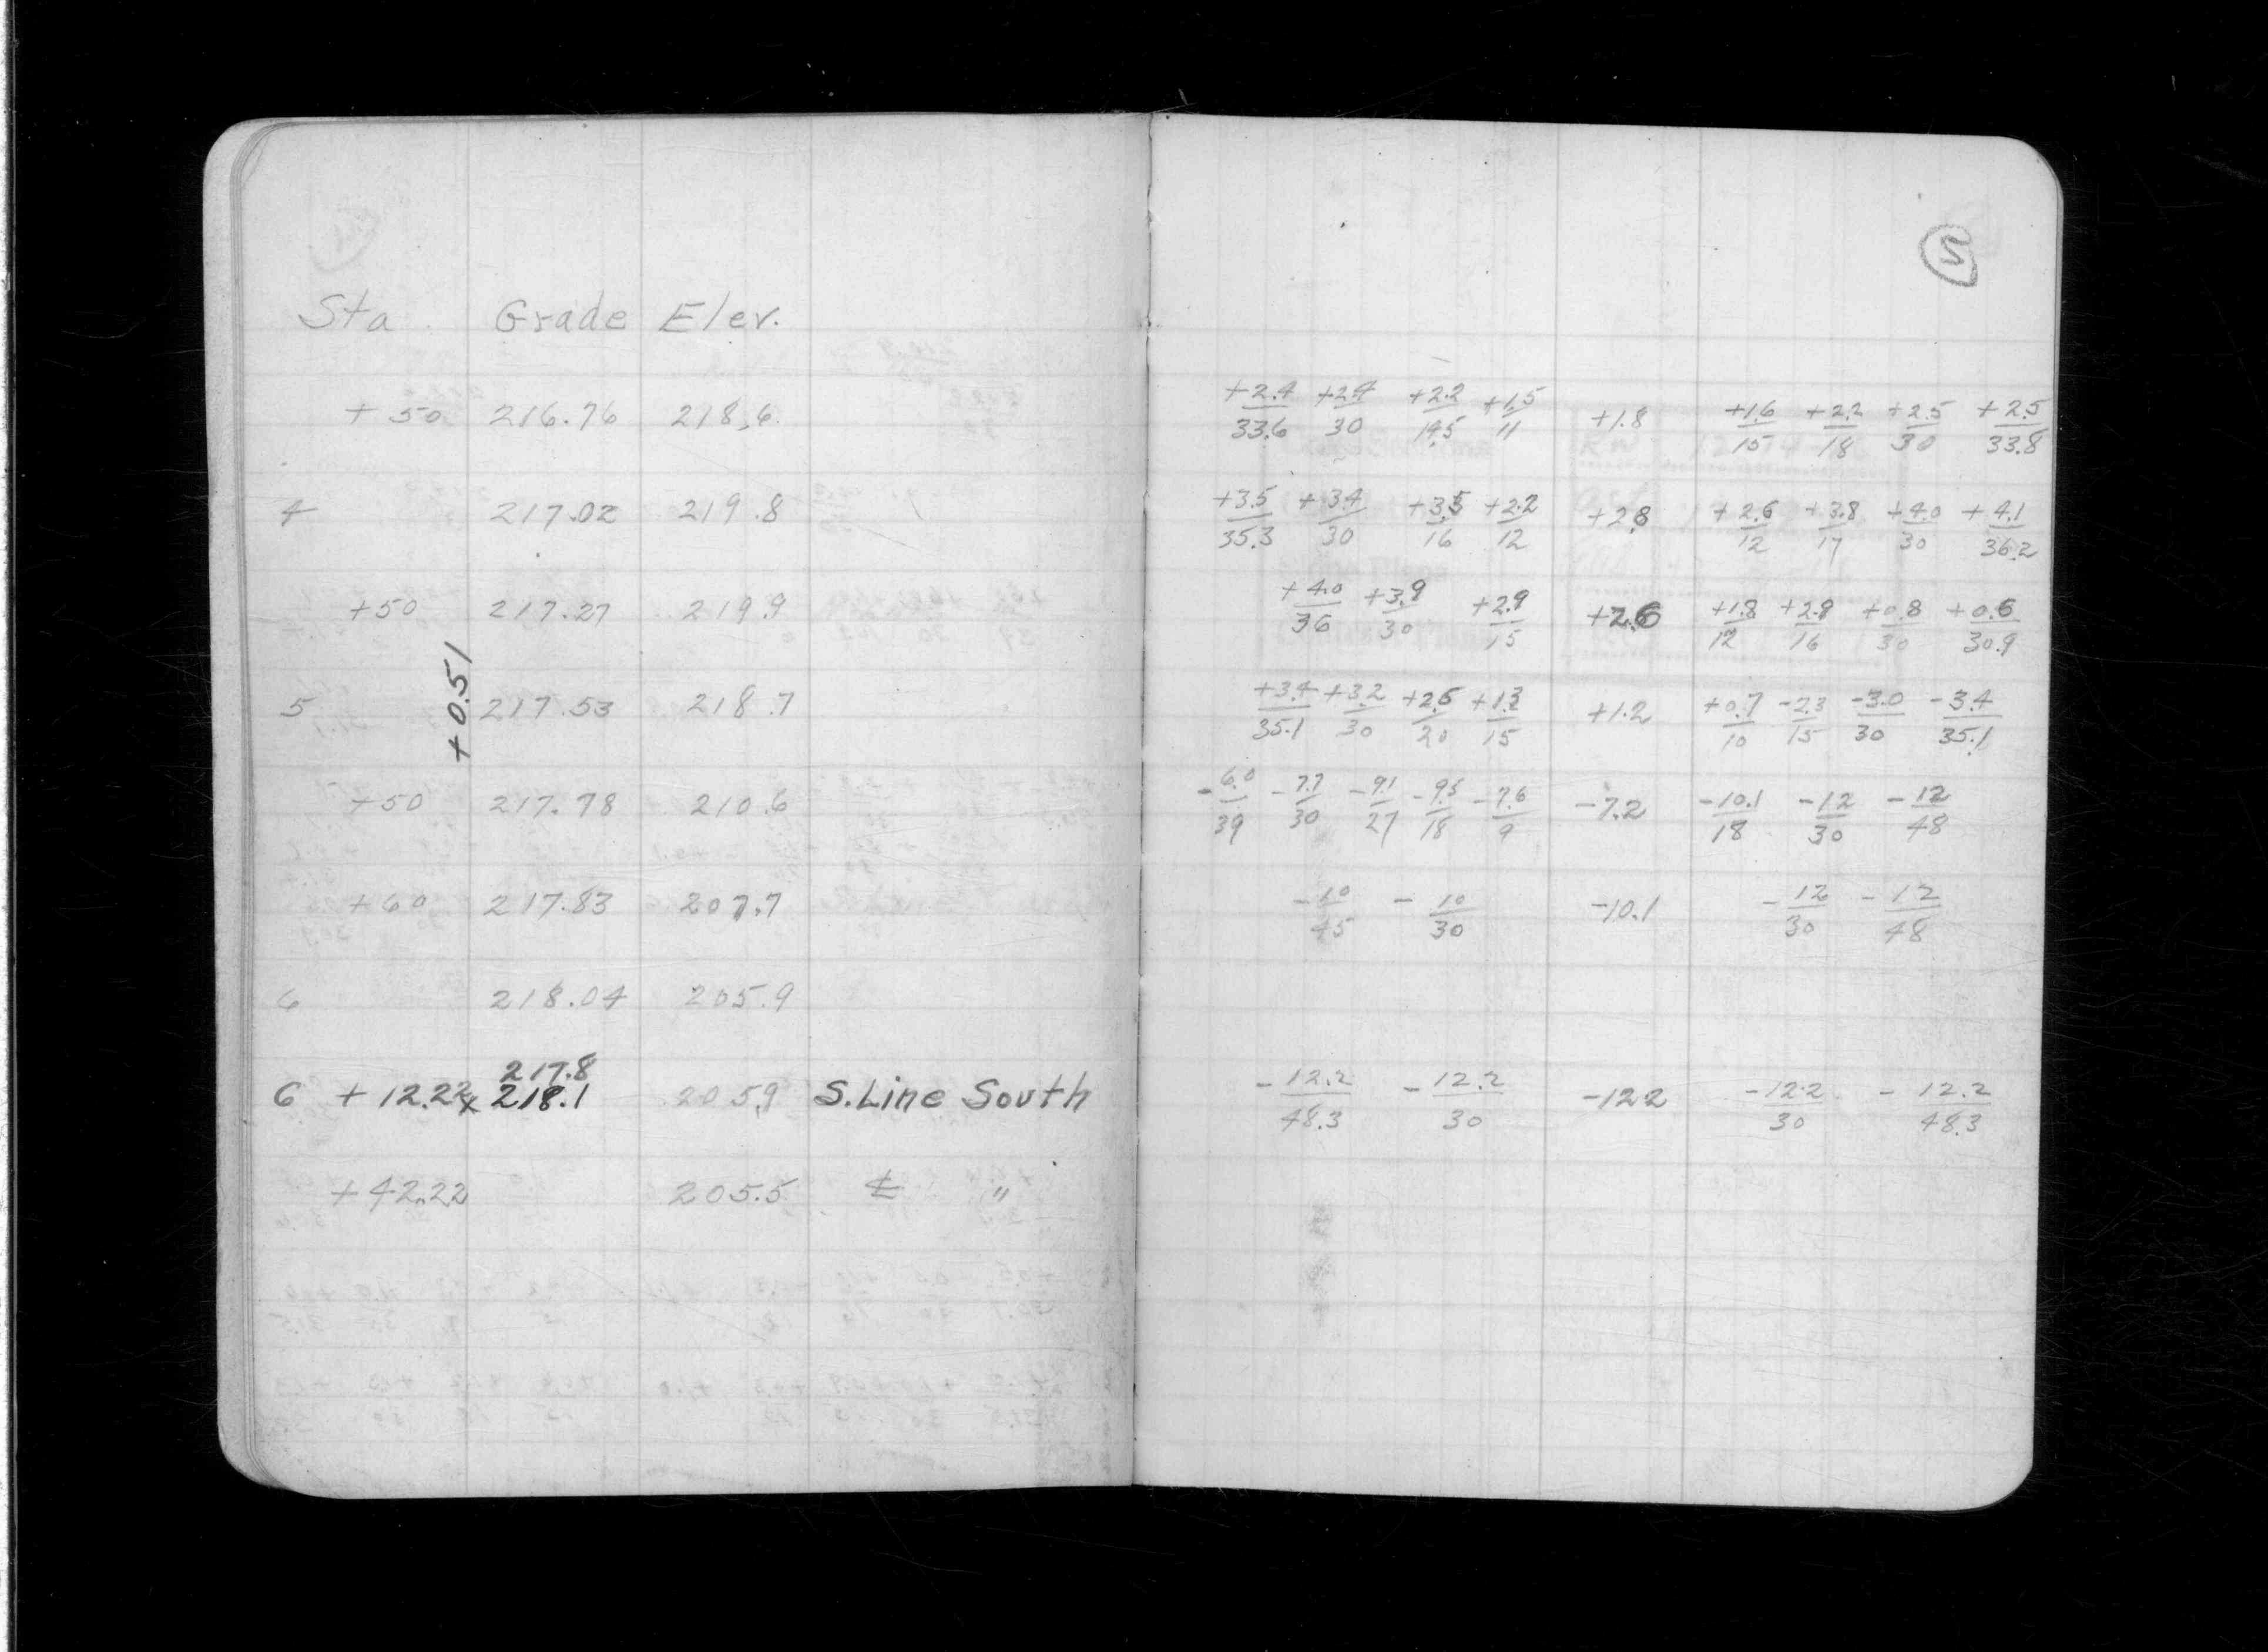 Sta Grade Elev.
+50 216.76 218.6
4 217.02 219.8
+50 217.27 219.9
+0.51
5 217.53 218.7
+50 217.78 210.6
+60 217.83 207.7
6 218.04 205.9
217.8
6 +12.22 x 218.1 205.9 S.Line South
+42.22 205.5 ℄ "
5
+2.4/33.6 +2.4/30 +2.2/14.5 +1.5/11 +1.8 +1.6/15 +2.2/18 +2.5/30 +2.5/33.8
+3.5/35.3 +3.4/30 +3.5/16 +2.2/12 +2.8 +2.6/12 +3.8/17 +4.0/30 +4.1/36.2
+4.0/36 +3.9/30 +2.9/15 +2.6 +1.8/12 +2.8/16 +0.8/30 +0.6/30.9
+3.4/35.1 +3.2/30 +2.6/20 +1.3/15 +1.2 +0.7/10 -2.3/15 -3.0/30 -3.4/35.1
-6.0/39 -7.7/30 -9.1/27 -9.5/18 -7.6/9 -7.2 -10.1/18 -12/30 -12/48
-10/45 -10/30 -10.1 -12/30 -12/48
-12.2/48.3 -12.2/30 -12.2 -12.2/30 -12.2/48.3